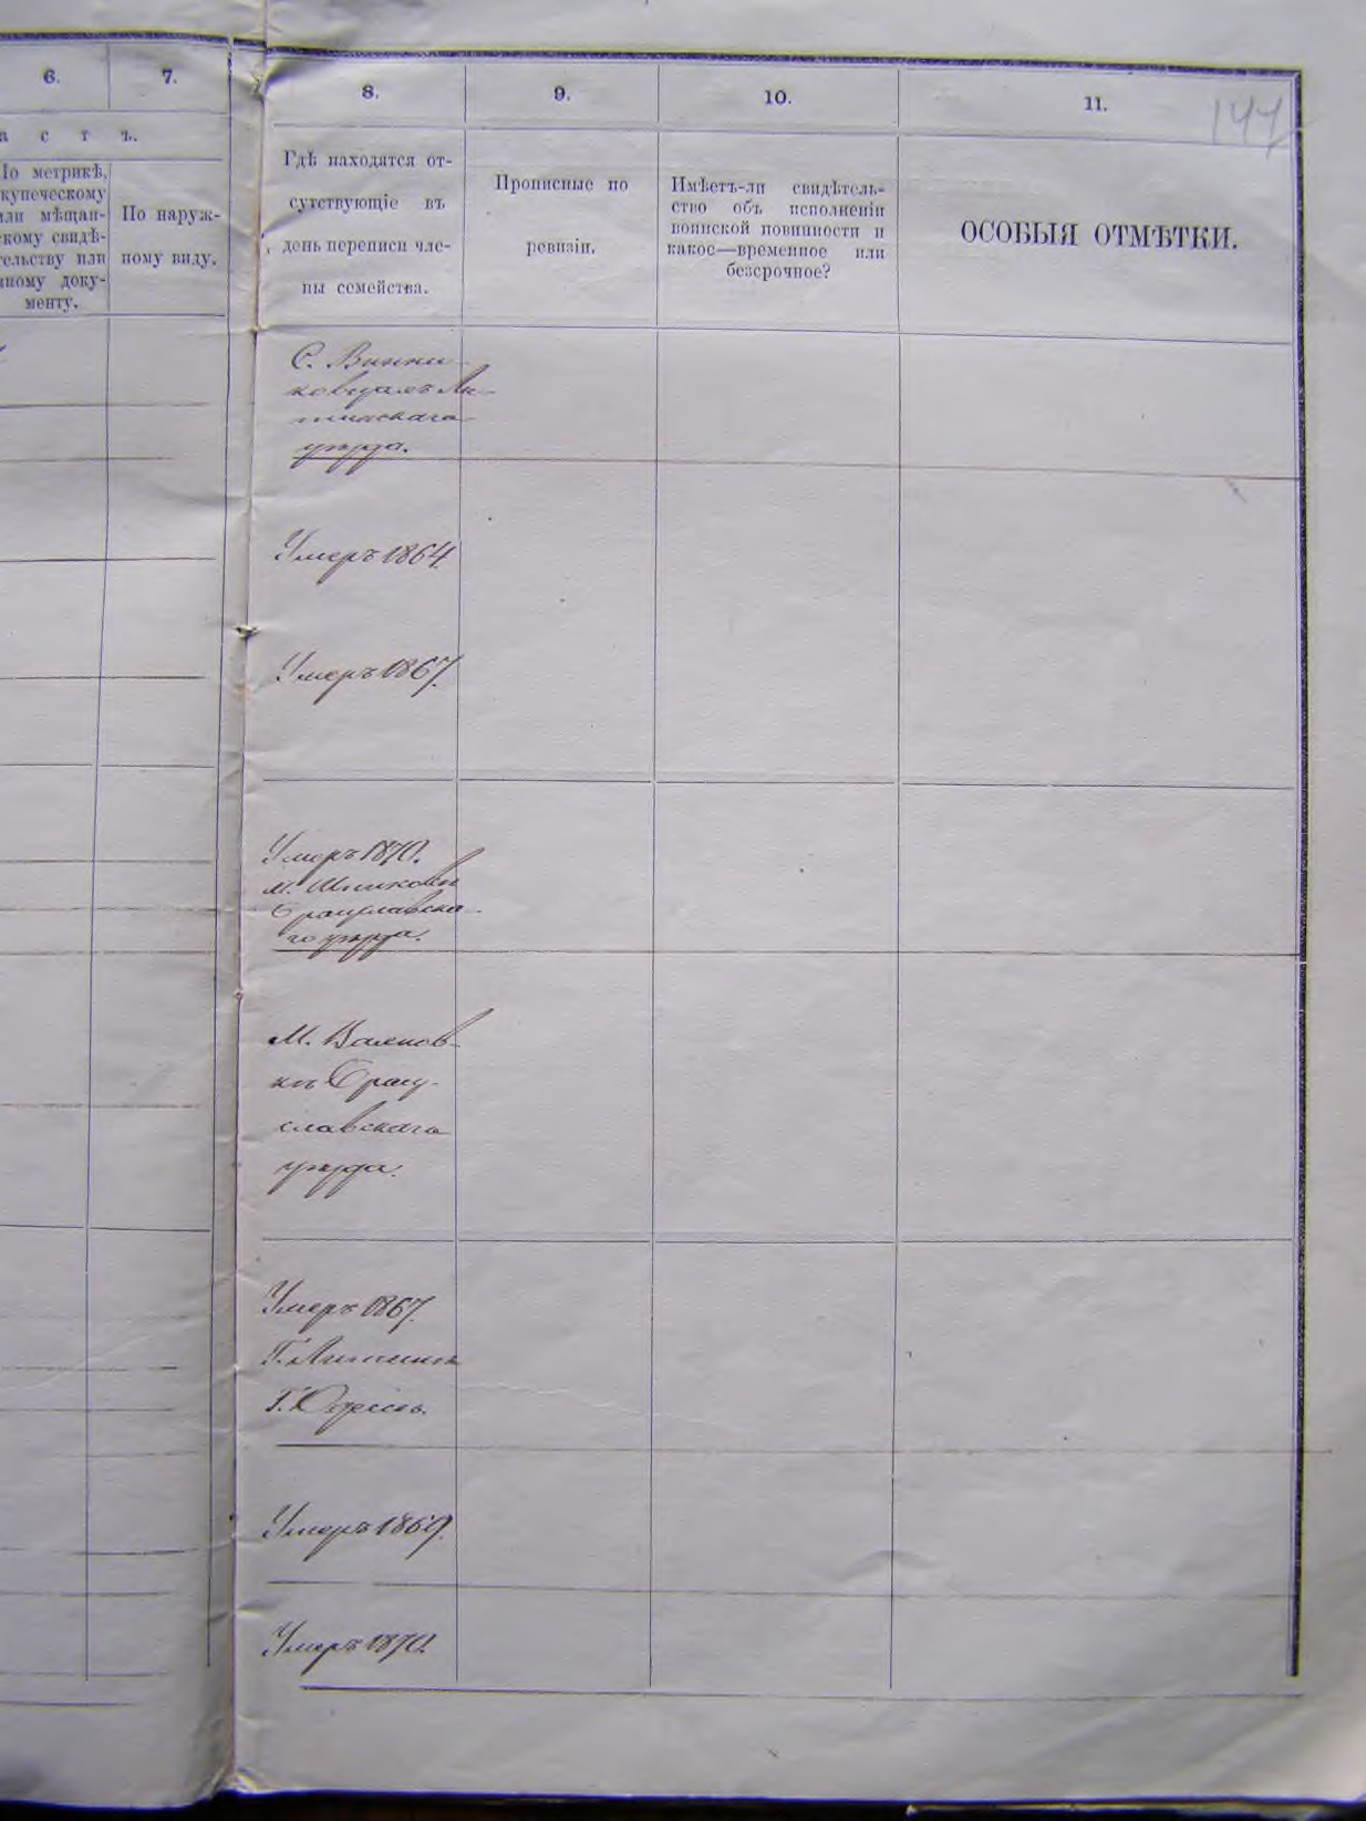 6.
7.
8.
9.
10.
11.
147
а с т ъ.
По метрикѣ,
купеческому
или мѣщан-
скому свидѣ-
тельству или
иному доку-
менту.
По наруж-
ному виду.
Гдѣ находятся от-
сутствующіе въ
день переписи чле-
ны семейства.
Прописные по
ревизіи.
Имѣетъ-ли свидѣтель-
ство объ исполненіи
воинской повинности и
какое—временное или
безсрочное?
ОСОБЫЯ ОТМѢТКИ.
С. Винни
ковцахъ Ли-
тинскаго
уѣзда.
Умеръ 1864.
Умеръ 1867.
Умеръ 1870.
м. Шпиковѣ
Брацлавска-
го уѣзда.
М. Вапняр-
кѣ Брац-
славскаго
уѣзда.
Умеръ 1867.
Г. Литинѣ
Г. Одессѣ.
Умеръ 1869.
Умеръ 1870.